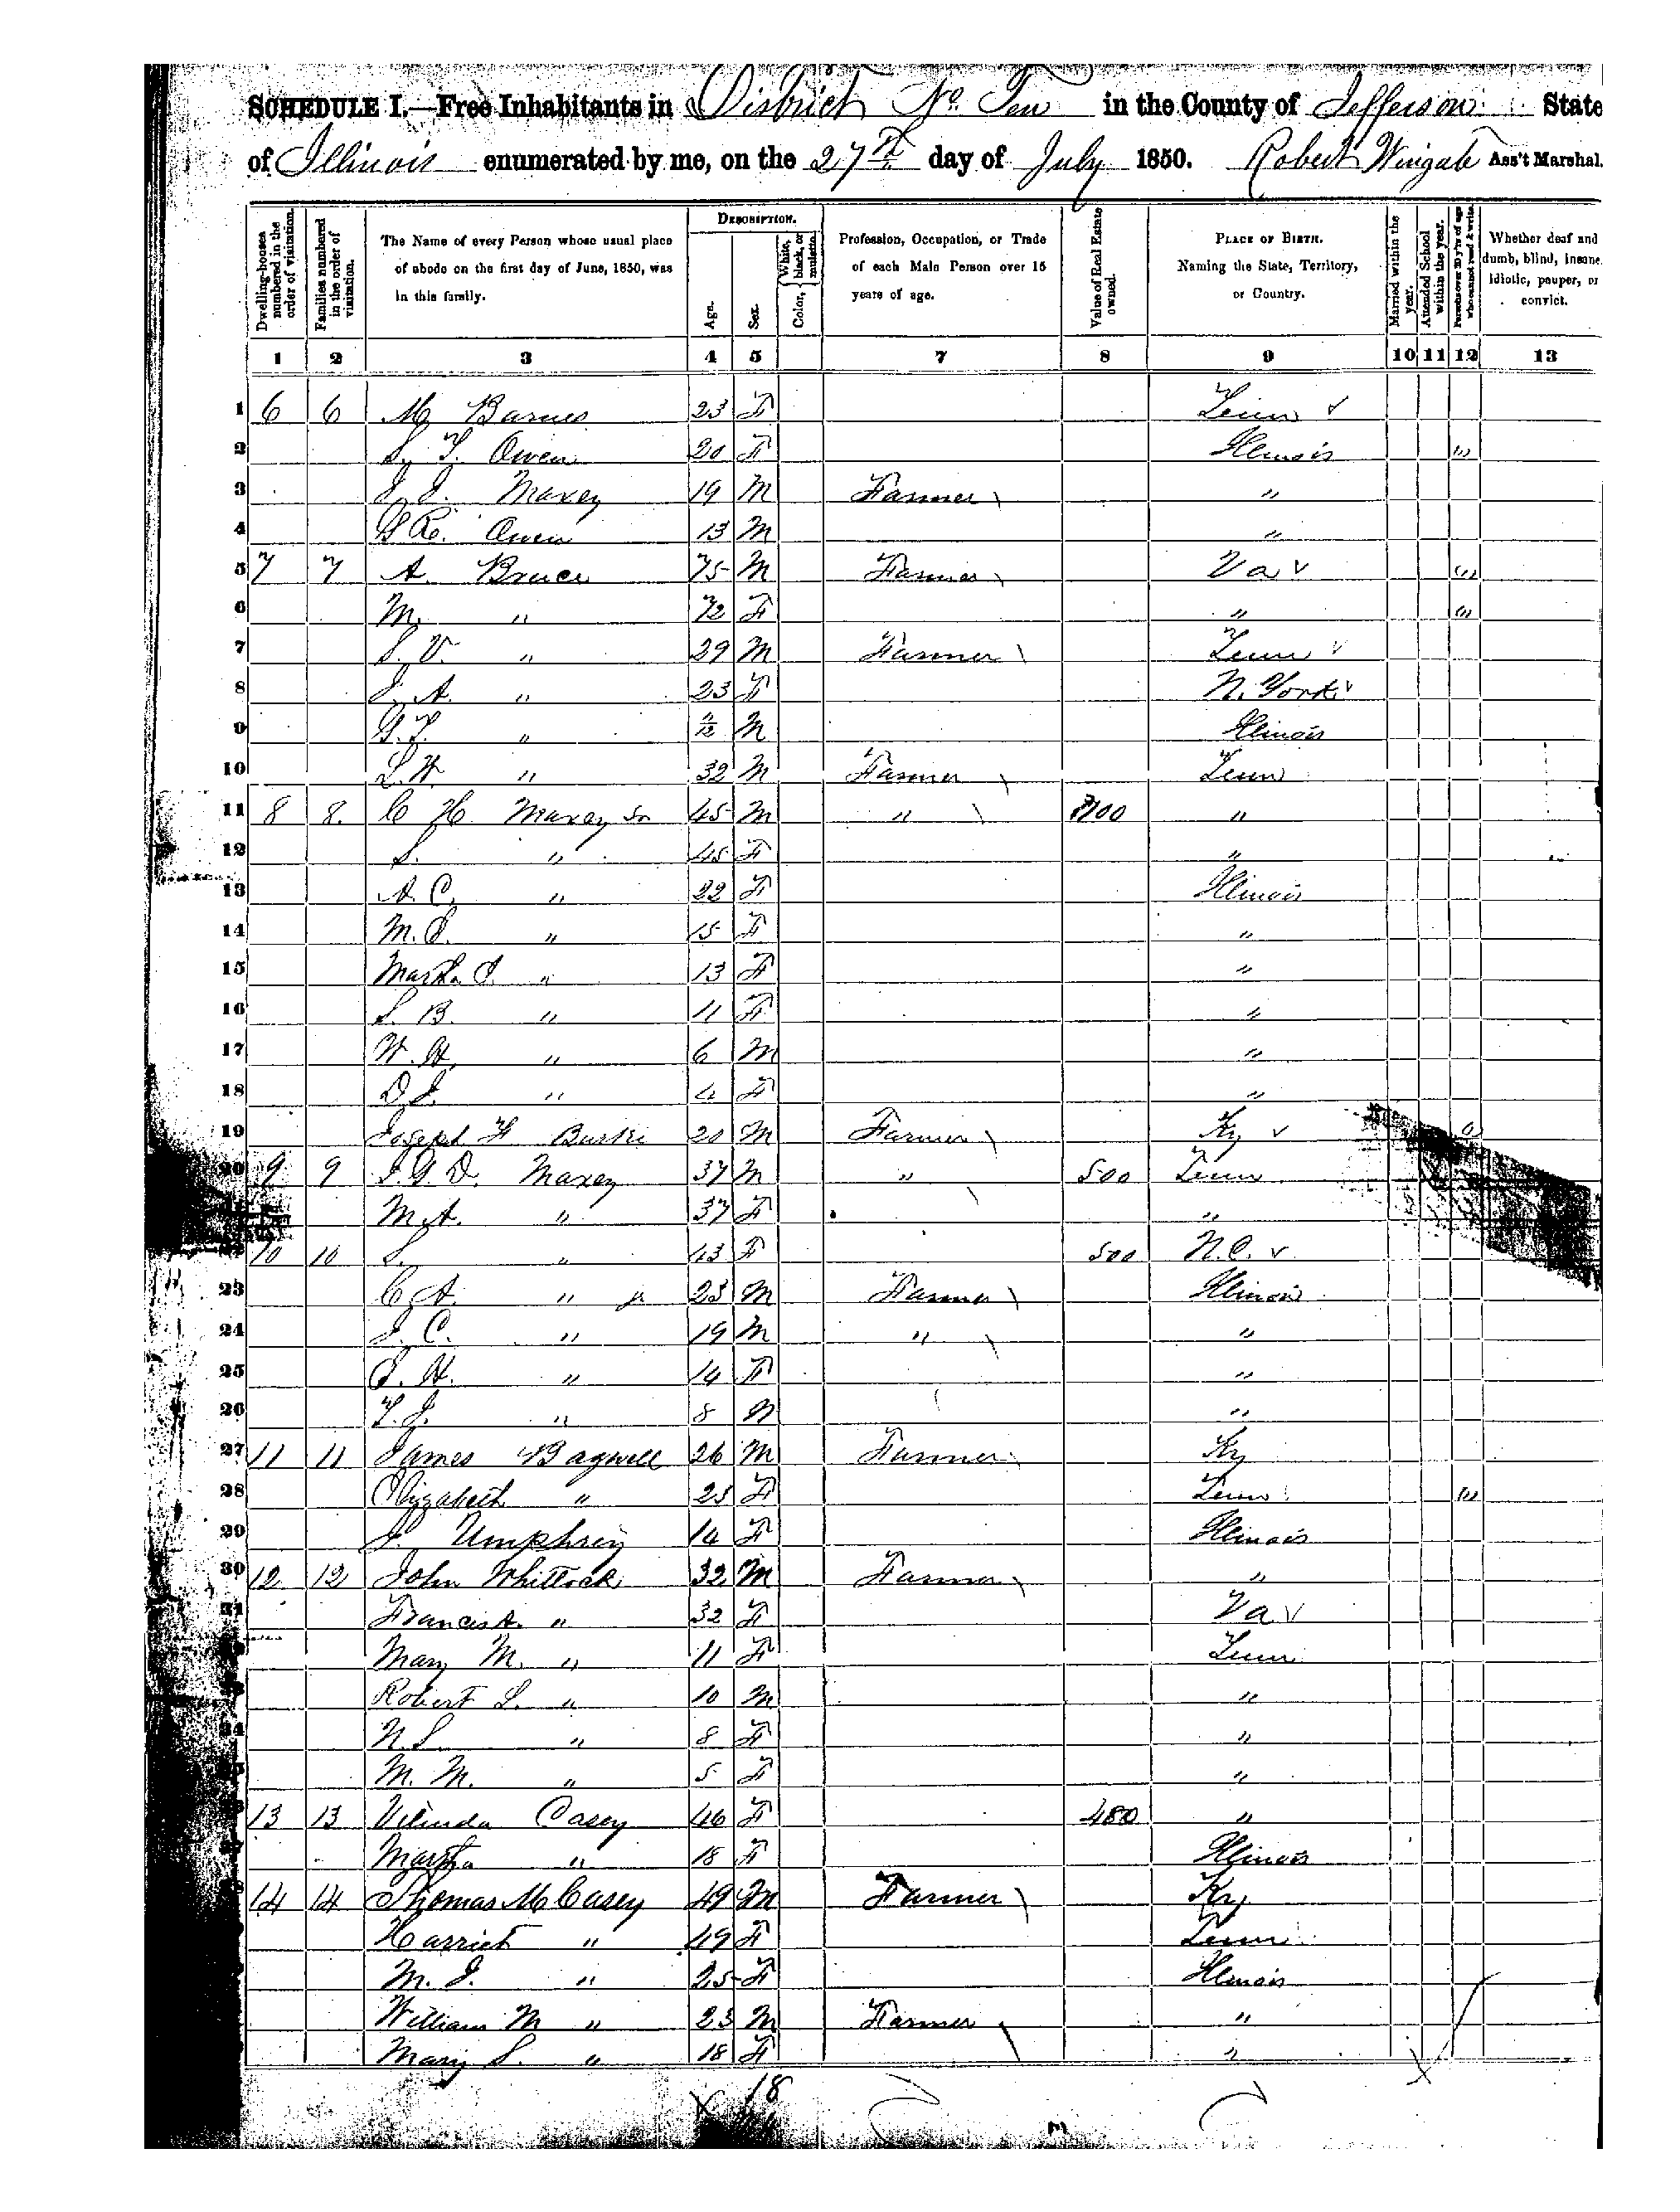 SCHEDULE I.—Free Inhabitants in District No. Ten in the County of Jefferson State
of Illinois enumerated by me, on the 27th day of July 1850. Robert Wingate Ass't Marshal.
Dwelling-houses numbered in the order of visitation.
Families numbered in the order of visitation.
The Name of every Person whose usual place of abode on the first day of June, 1850, was in this family.
DESCRIPTION.
Age.
Sex.
Color, White, black, or mulatto.
Profession, Occupation, or Trade of each Male Person over 15 years of age.
Value of Real Estate owned.
PLACE OF BIRTH. Naming the State, Territory, or Country.
Married within the year.
Attended School within the year.
Persons over 20 y'rs of age who cannot read & write.
Whether deaf and dumb, blind, insane, idiotic, pauper, or convict.
1 2 3 4 5 7 8 9 10 11 12 13
1 6 6 M Barnes 23 F Tenn
2 S. T. Owen 20 F Illinois
3 J. J. Maxey 19 M Farmer "
4 Owen 13 M "
5 7 7 A. Bruce 75 M Farmer Va
6 M. " 72 F "
7 S. V. " 29 M Farmer Tenn
8 J. A. " 23 F N. York
9 G. T. " M Illinois
10 L. W. " 32 M Farmer Tenn
11 8 8 C H Maxey Sr 45 M " "
12 S. " 45 F "
13 A. C. " 22 F Illinois
14 M. E. " 15 F "
15 Martha " 13 F "
16 S. B. " 11 F "
17 W. H. " 6 M "
18 D. J. " 4 F "
19 Joseph Burke 20 M Farmer Ky
20 9 9 Maxey 37 M " 500 Tenn
M. A. " 37 F "
10 10 S. " 43 F 500 N.C.
23 C. H. " jr 23 M Farmer Illinois
24 J. C. " 19 M " "
25 E. H. " 14 F "
26 T. J. " 8 M "
27 11 11 James Bagwell 26 M Farmer Ky
28 Elizabeth " 23 F Tenn
29 J. Umphrey 14 F Illinois
30 12 12 John Whitlock 32 M Farmer "
31 Francis A. " 32 F Va
Mary M. " 11 F Tenn
Robert L. " 10 M "
34 N. S. " 8 F "
M. M. " 5 F "
13 13 Vilinda Casey 46 F 480 "
Martha " 18 F Illinois
14 14 Thomas M Casey 49 M Farmer Ky
Harriet " 49 F Tenn
M. J. " 25 F Illinois
William M " 23 M Farmer "
Mary S. " 18 F "
18
3